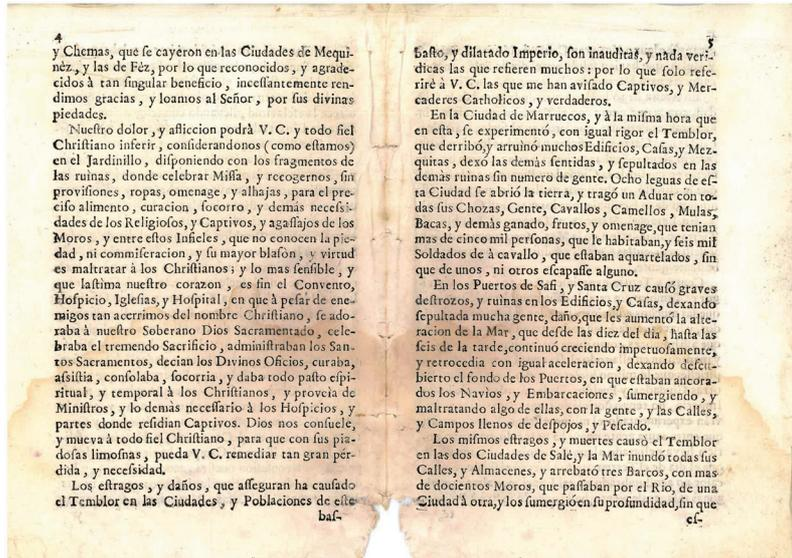 4
y Chemas, que se cayeron en las Ciudades de Mequi-
néz, y las de Féz, por lo que reconocidos, y agrade-
cidos à tan singular beneficio, incessantemente ren-
dimos gracias, y loamos al Señor, por sus divinas
piedades.
Nuestro dolor, y afliccion podrà V. C. y todo fiel
Christiano inferir, considerandonos (como estamos)
en el Jardinillo, disponiendo con los fragmentos de
las ruinas, donde celebrar Missa, y recogernos, sin
provisiones, ropas, omenage, y alhajas, para el pre-
ciso alimento, curacion, socorro, y demàs necessi-
dades de los Religiosos, y Captivos, y agassajos de los
Moros, y entre estos Infieles, que no conocen la pie-
dad, ni commiseracion, y su mayor blasòn, y virtud
es maltratar à los Christianos; y lo mas sensible, y
que lastima nuestro corazon, es sin el Convento,
Hospicio, Iglesias, y Hospital, en que à pesar de ene-
migos tan acerrimos del nombre Christiano, se ado-
raba à nuestro Soberano Dios Sacramentado, cele-
braba el tremendo Sacrificio, administraban los San-
tos Sacramentos, decian los Divinos Oficios, curaba,
assistia, consolaba, socorria, y daba todo pasto espi-
ritual, y temporal à los Christianos, y proveia de
Ministros, y lo demàs necessario à los Hospicios, y
partes donde residian Captivos. Dios nos consuele,
y mueva à todo fiel Christiano, para que con sus pia-
dosas limosnas, pueda V. C. remediar tan gran pér-
dida, y necessidad.
Los estragos, y daños, que asseguran ha causado
el Temblor en las Ciudades, y Poblaciones de este
bas-
5
basto, y dilatado Imperio, son inauditas, y nada veri-
dicas las que refieren muchos: por lo que solo refe-
rirè à V. C. las que me han avisado Captivos, y Mer-
caderes Catholicos, y verdaderos.
En la Ciudad de Marruecos, y à la misma hora que
en esta, se experimentó, con igual rigor el Temblor,
que derribó, y arruinò muchos Edificios, Casas, y Mez-
quitas, dexò las demàs sentidas, y sepultados en las
demàs ruinas sin numero de gente. Ocho leguas de es-
ta Ciudad se abrió la tierra, y tragó un Aduar con to-
das sus Chozas, Gente, Cavallos, Camellos, Mulas,
Bacas, y demàs ganado, frutos, y omenage, que tenian
mas de cinco mil personas, que le habitaban, y seis mil
Soldados de à cavallo, que estaban aquartelados, sin
que de unos, ni otros escapasse alguno.
En los Puertos de Safi, y Santa Cruz causó graves
destrozos, y ruinas en los Edificios, y Casas, dexando
sepultada mucha gente, daño, que les aumentó la alte-
racion de la Mar, que desde las diez del dia, hasta las
seis de la tarde, continuó creciendo impetuosamente,
y retrocedia con igual aceleracion, dexando descu-
bierto el fondo de los Puertos, en que estaban ancora-
dos los Navios, y Embarcaciones, sumergiendo, y
maltratando algo de ellas, con la gente, y las Calles,
y Campos llenos de despojos, y Pescado.
Los mismos estragos, y muertes causò el Temblor
en las dos Ciudades de Salé, y la Mar inundó todas sus
Calles, y Almacenes, y arrebató tres Barcos, con mas
de docientos Moros, que passaban por el Rio, de una
Ciudad à otra, y los sumergió en su profundidad, sin que
es-